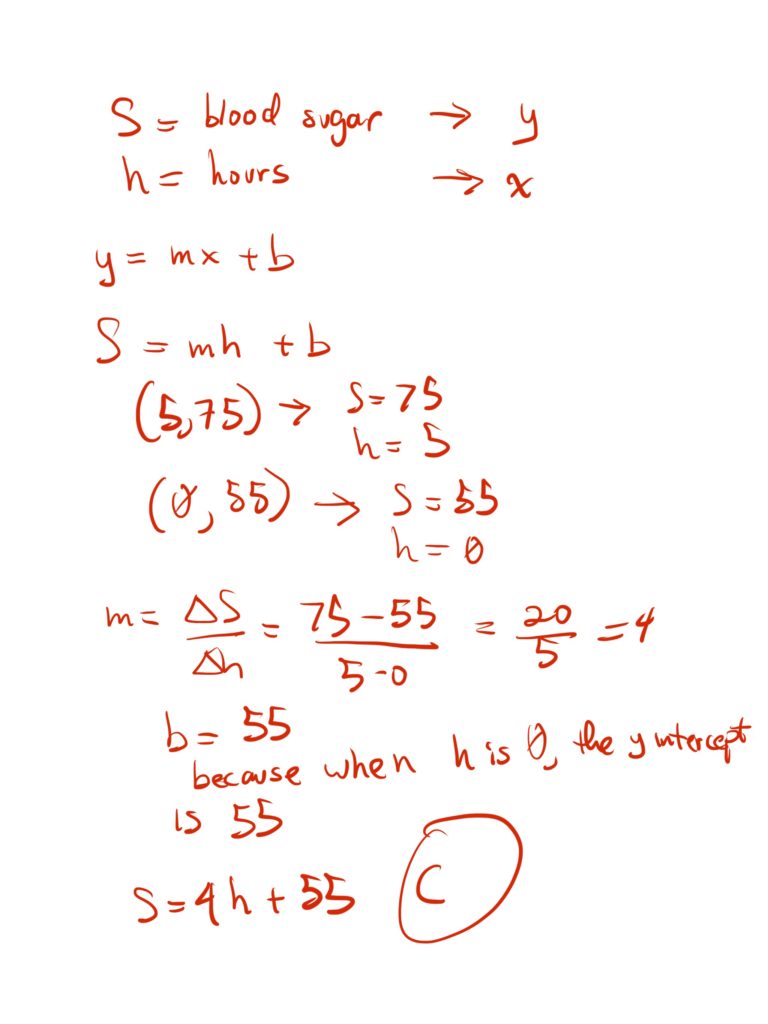 S = blood sugar → y
h = hours → x
y = mx + b
S = mh + b
(5,75) → S = 75
h = 5
(0, 55) → S = 55
h = 0
m = ΔS/Δh = 75 - 55/5 - 0 = 20/5 = 4
b = 55
because when h is 0, the y intercept
is 55
S = 4h + 55 C